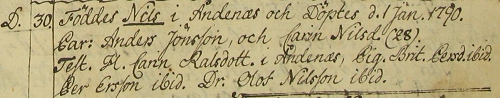 D. 30. Föddes Nils i Andenæs och Döptes d. 1 Jan. 1790.
Par: Anders Jönsson, och Carin Nilsd (28).
Test. Pl. Carin Ralsdott. i Andenæs, Pig. Brit. Persd. ibid.
Per Ersson ibid. Dr. Olof Nilsson ibid.